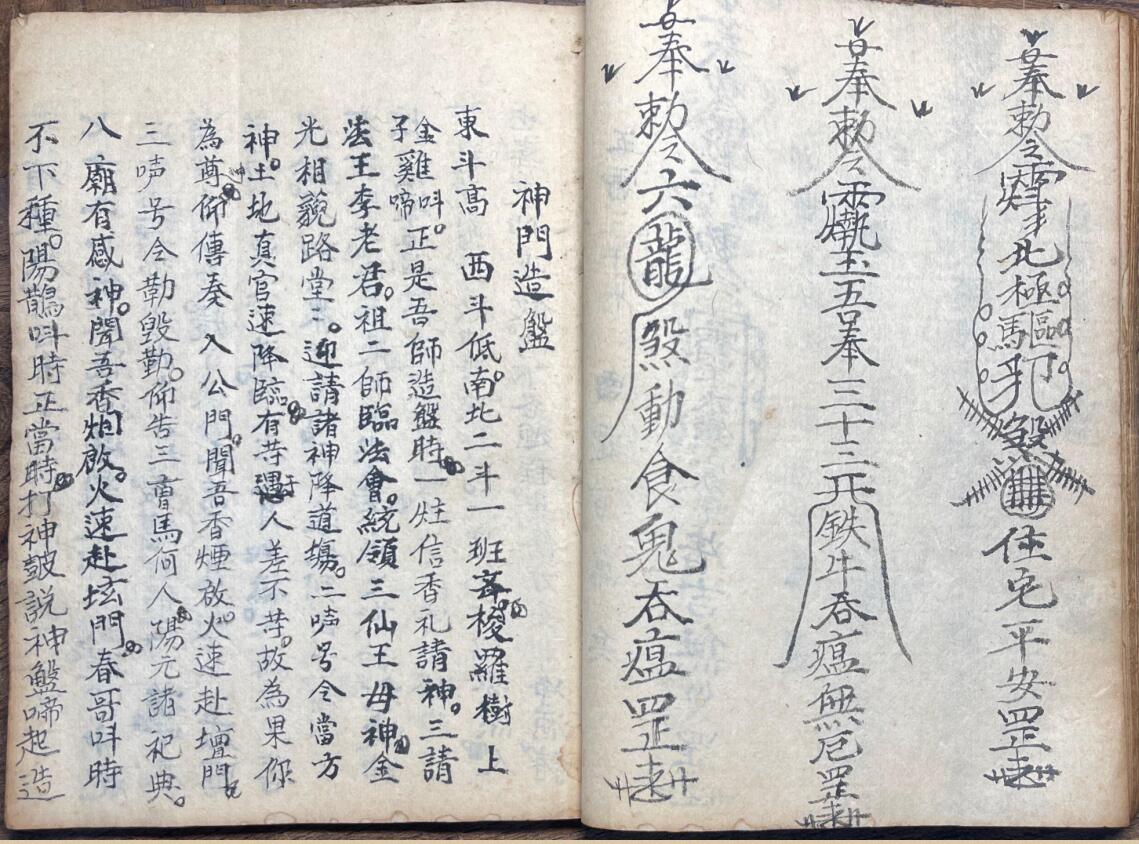 奉勅令 北極驅邪 煞 住宅平安罡
奉勅令 玉五奉三十三天鉄牛吞瘟無厄罡
奉勅令六龍煞動食鬼吞瘟罡
神門造盤
東斗高 西斗低。南北二斗一班 梭羅樹上
金雞叫。正是吾師造盤時 一炷信香礼請神。三請
子啼
法王李老君。祖二師臨法會。統領三仙王母神 金
光相貌路堂二。迎請諸神降道塲。二啼号令當方
神。土地真官速降臨。有苛 人差不苛。故為果你
為尊仰傳奏 入公門。聞吾香煙啟。火速赴壇門
三啼号令勒毀勒。仰告三曹馬何人 陽元諸祀典。
八廟有感神。聞吾香烟啟。火速赴坛門。春哥叫時
不下種。陽鵲叫時正當時 打神鼓說神盤啼起造